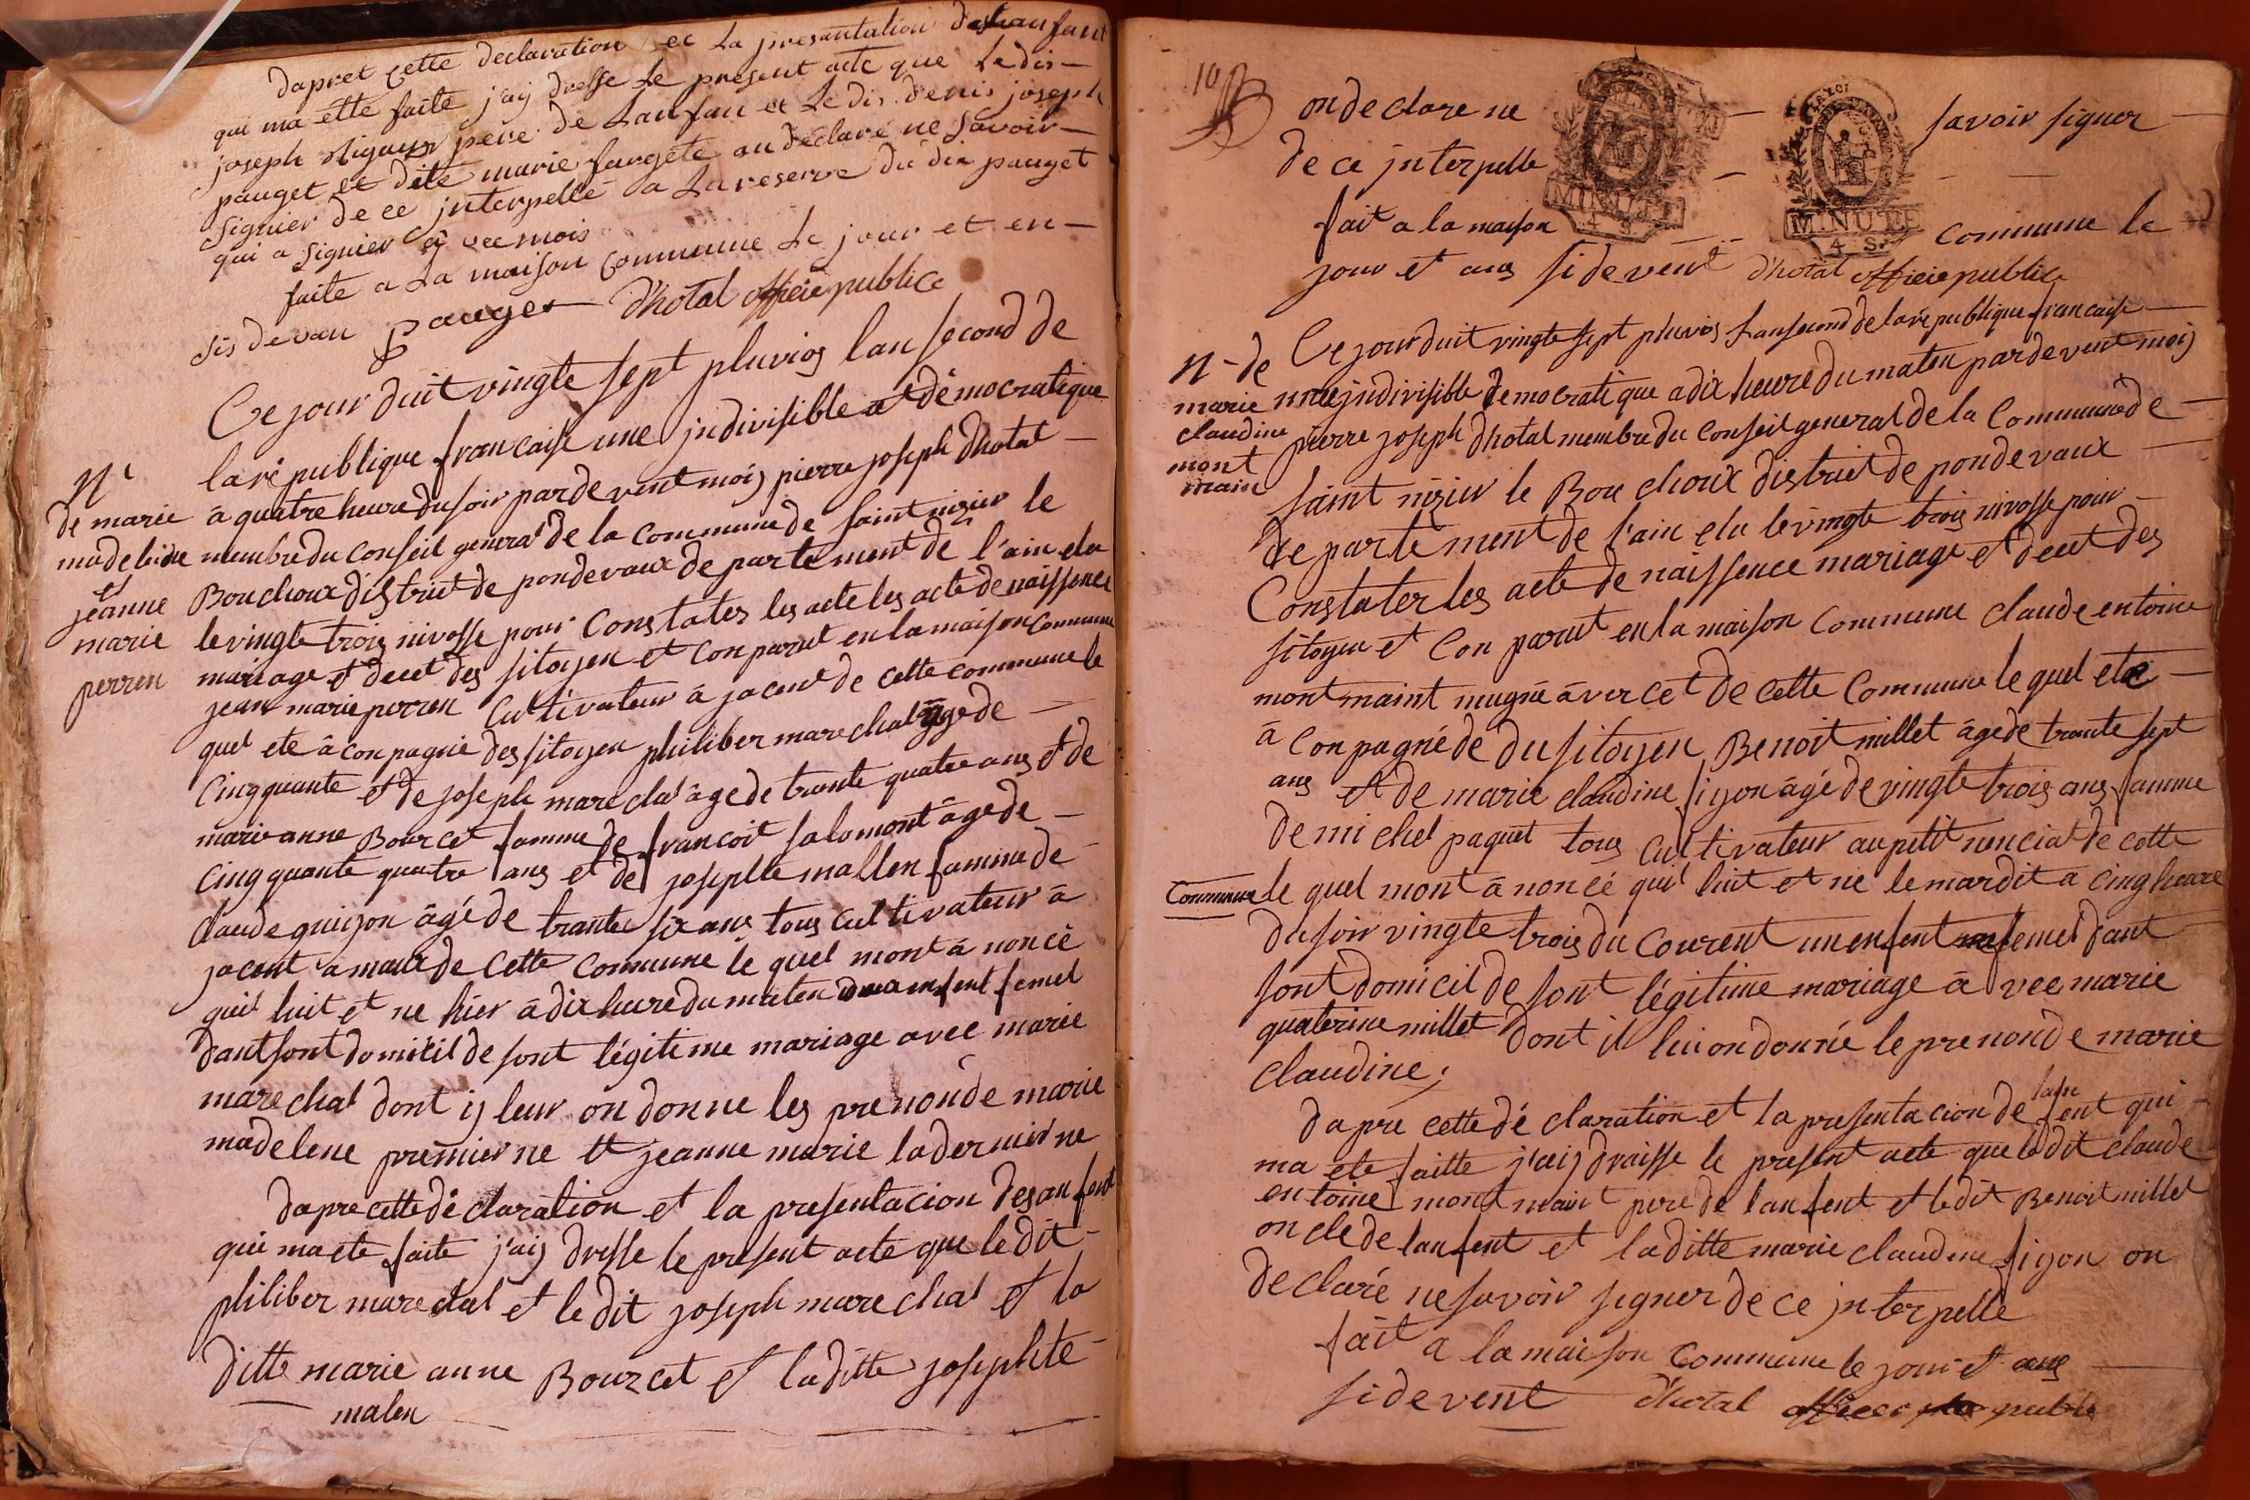 dapret cette declaration ec la presantation
qui ma ette faite j'aij dresse le present acte que le dis
joseph pere de lanfan et le dis denis joseph
pauget et dite marie fargete on declare ne savoir
signier de ce jnterpelle a la reserve du dix pauget
qui a signier avec mois
faite a la maison commune le jour et en
sis devan pauget dhotal officie publice
Ce jour duit vingte sept pluvios lan second de
la republique francaise une jndivisible et démocratique
à quatre heure du soir par devent moij pierre joseph dhotal
membre du conseil general de la commune de saint nizier le
Bouchoux district de pondevaux departement de l'ain elu
le vingte trois nivosse pour constater les acte les acte de naissence
mariage et decet des sitoyen et conparut en la maison commune
jean marie perren cultivateur à jacent de cette commune le
quel ete à conpagnie des sitoyen philiber marechal âgé de
cinqquante et de joseph marechal âge de trante quatre ans et de
marie anne Bourcet famme de francoit salomont âge de
cinqquante quatre ans et de josephte mallen famme de
claude guijon âgé de trante six ans tous cultivateur à
jacent a de cette commune le quel mont à noncé
quil luit et ne hier à dix heure du maten enfent femel
dant sont domicil de sont légitime mariage avec marie
marechal dont ij leur on donne les prenon de marie
madelene premier ne et jeanne marie la dernier ne
dapre cette déclaration et la presentacion des anfent
qui ma ete faite j'aij dresse le present acte que le dit
philiber marechal et le dit joseph marechal et la
ditte marie anne Bourcet et la ditte josephte
malen
N
de marie
madeleine
et
jeanne
marie
perren
10
on declare ne savoir signer
de ce jnterpelle
MINUTE
4 S.
MINUTE
4 S.
fait a la maison commune le
jour et ans si devent dhotal officie public
N de
marie
claudine
mont
main
Ce jour duit vingte sept pluvios lan second de la republique francaise
une jndivisible democratique a dix heure du maten par devent moij
pierre joseph dhotal membre du conseil general de la commune de
saint nizier le Bouchoux district de pondevaux
departement de l'ain elu le vingte trois nivosse pour
Constater les acte de naissence mariage et decet des
sitoyen et conparut en la maison commune claude entoine
montmaint mugnié à vercet de cette commune le quel ete
à conpagné de du sitoyen Benoit millet âge de trante sept
ans et de marie claudine fijon âgé de vingte trois ans famme
de michel paquet tous cultivateur au petit nenciat de cette
commune le quel mont à noncé quil luit et ne le mardit a cinq heure
du soir vingte trois du courent un enfent femel dant
sont domicil de sont légitime mariage à vec marie
quaterine millet dont il lui on donné le prenon de marie
claudine,
dapre cette déclaration et la presentacion de lanfent qui
ma ete faitte j'aij draisse le present acte que le dit claude
entoine montmaint pere de lanfent et le dit Benoit millet
oncle de lanfent et la ditte marie claudine fijon on
declaré ne savoir segner de ce jnterpelle
fait a la maison commune le jour et ans
sidevent dhotal officier public